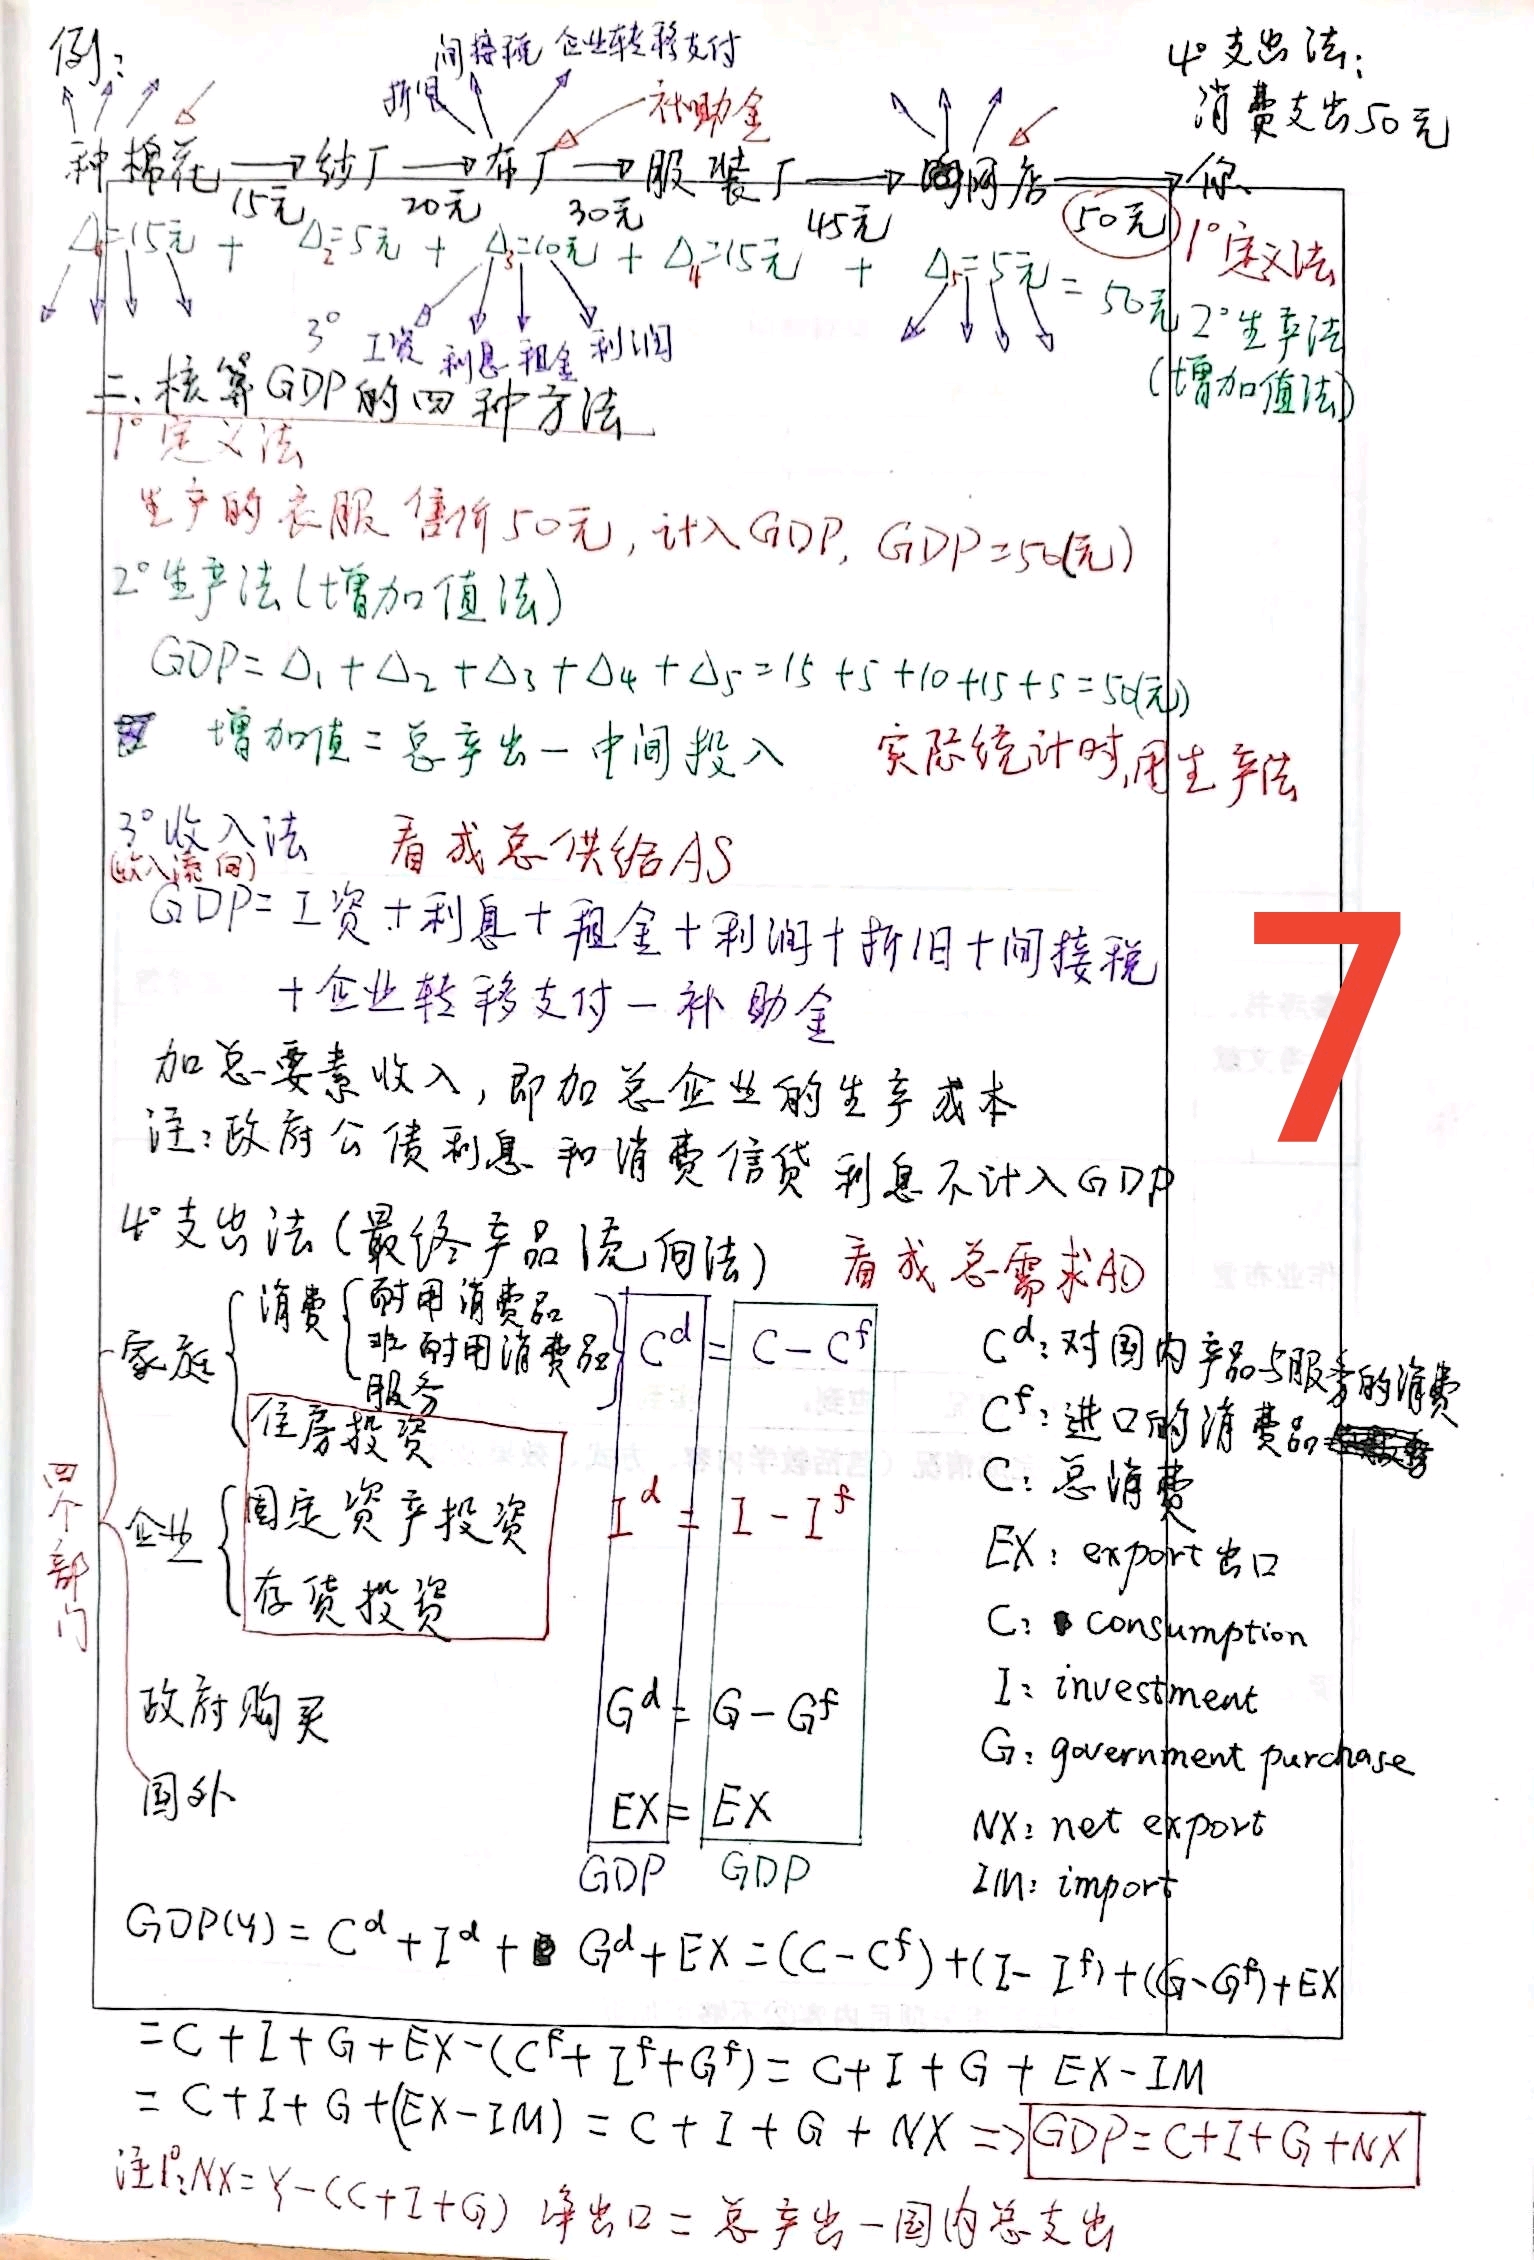 例：
间接税 企业转移支付
折旧
补助金
4° 支出法：
消费支出50元
种棉花 → 纱厂 → 布厂 → 服装厂 → 网店 → 你
15元 20元 30元 45元 50元
Δ₁=15元 + Δ₂=5元 + Δ₃=10元 + Δ₄=15元 + Δ₅=5元 = 50元
1° 定义法
2° 生产法
(增加值法)
3° 工资 利息 租金 利润
二、核算GDP的四种方法
1° 定义法
生产的衣服售价50元，计入GDP，GDP=50(元)
2° 生产法(增加值法)
GDP=Δ₁+Δ₂+Δ₃+Δ₄+Δ₅=15+5+10+15+5=50(元)
增加值=总产出-中间投入 实际统计时,用生产法
3° 收入法 看成总供给AS
(收入流向)
GDP=工资+利息+租金+利润+折旧+间接税
+企业转移支付-补助金
7
加总要素收入，即加总企业的生产成本
注：政府公债利息和消费信贷利息不计入GDP
4° 支出法(最终产品流向法) 看成总需求AD
四个部门
家庭
消费
耐用消费品
非耐用消费品
服务
Cᵈ = C-Cᶠ
住房投资
企业
固定资产投资
存货投资
Iᵈ = I-Iᶠ
政府购买 Gᵈ = G-Gᶠ
国外 EX = EX
GDP GDP
Cᵈ：对国内产品与服务的消费
Cᶠ：进口的消费品
C：总消费
EX：export出口
C：consumption
I：investment
G：government purchase
NX：net export
IM：import
GDP(y)=Cᵈ+Iᵈ+Gᵈ+EX=(C-Cᶠ)+(I-Iᶠ)+(G-Gᶠ)+EX
=C+I+G+EX-(Cᶠ+Iᶠ+Gᶠ)=C+I+G+EX-IM
=C+I+G+(EX-IM)=C+I+G+NX⇒GDP=C+I+G+NX
注1°：NX=Y-(C+I+G) 净出口=总产出-国内总支出